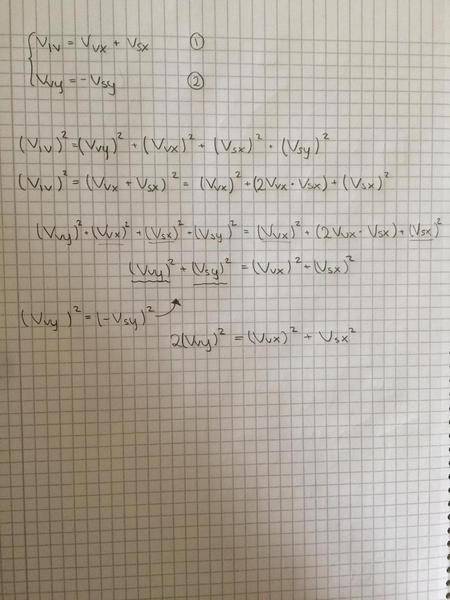 V₁ᵥ = Vᵥₓ + Vₛₓ ①
Vᵥᵧ = -Vₛᵧ ②
(V₁ᵥ)² = (Vᵥᵧ)² + (Vᵥₓ)² + (Vₛₓ)² + (Vₛᵧ)²
(V₁ᵥ)² = (Vᵥₓ + Vₛₓ)² = (Vᵥₓ)² + (2Vᵥₓ · Vₛₓ) + (Vₛₓ)²
(Vᵥᵧ)² + (Vᵥₓ)² + (Vₛₓ)² + (Vₛᵧ)² = (Vᵥₓ)² + (2Vᵥₓ · Vₛₓ) + (Vₛₓ)²
(Vᵥᵧ)² + (Vₛᵧ)² = (Vᵥₓ)² + (Vₛₓ)²
(Vᵥᵧ)² = (-Vₛᵧ)²
2(Vᵥᵧ)² = (Vᵥₓ)² + Vₛₓ²